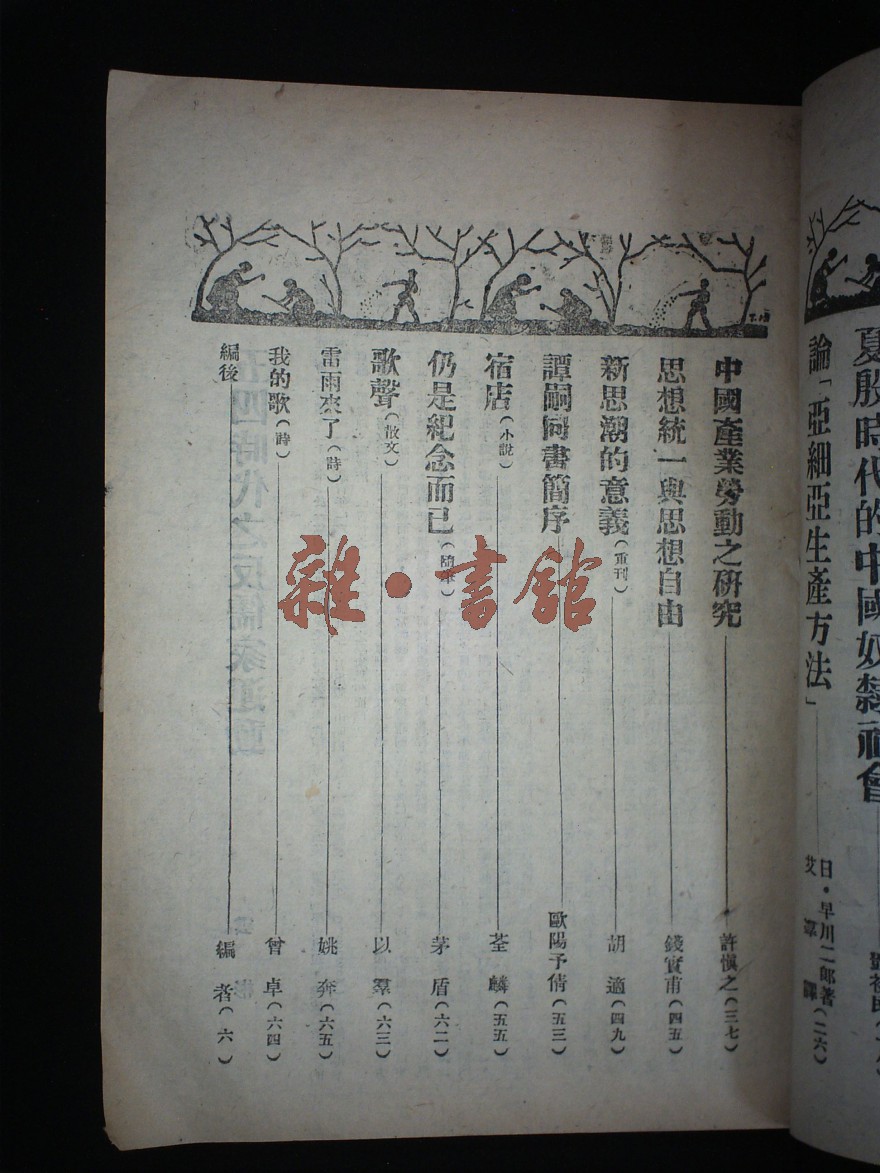 夏殷時代的中國奴隸社會
論「亞細亞生產方法」 日・早川二郎著 艾 譯(二六)
中國產業勞動之研究 許愼之(三七)
思想統一與思想自由 錢實甫(四五)
新思潮的意義(重刊) 胡適(四九)
譚嗣同書簡序 歐陽予倩(五三)
宿店(小說) 荃麟(五五)
仍是紀念而已(隨筆) 茅盾(六二)
歌聲(散文) 以羣(六三)
雷雨來了(詩) 姚奔(六五)
我的歌(詩) 曾卓(六四)
編後 編者(六)
雜・書館